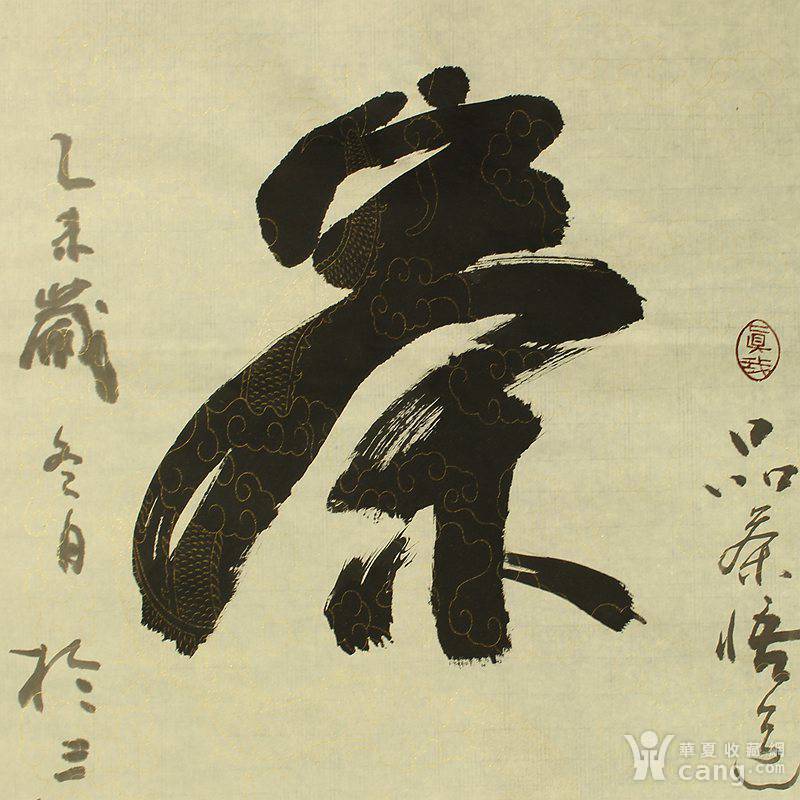 眞我
品茶悟道
茶
乙未歲冬月於三
華夏收藏網
cang.com